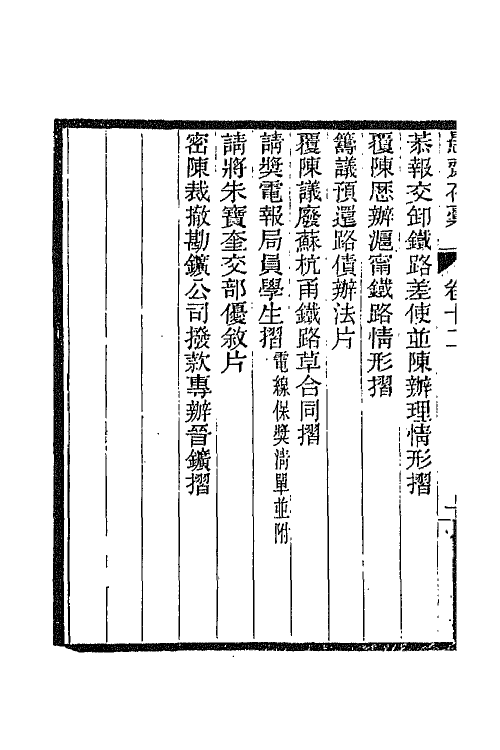 愚齋存稾　卷十二
恭報交卸鐵路差使並陳辦理情形摺
覆陳歷辦滬甯鐵路情形摺
籌議預還路債辦法片
覆陳議廢蘇杭甬鐵路草合同摺
請獎電報局員學生摺電線保獎淸單並附
請將朱寶奎交部優敘片
密陳裁撤勘鑛公司撥款專辦晉鑛摺